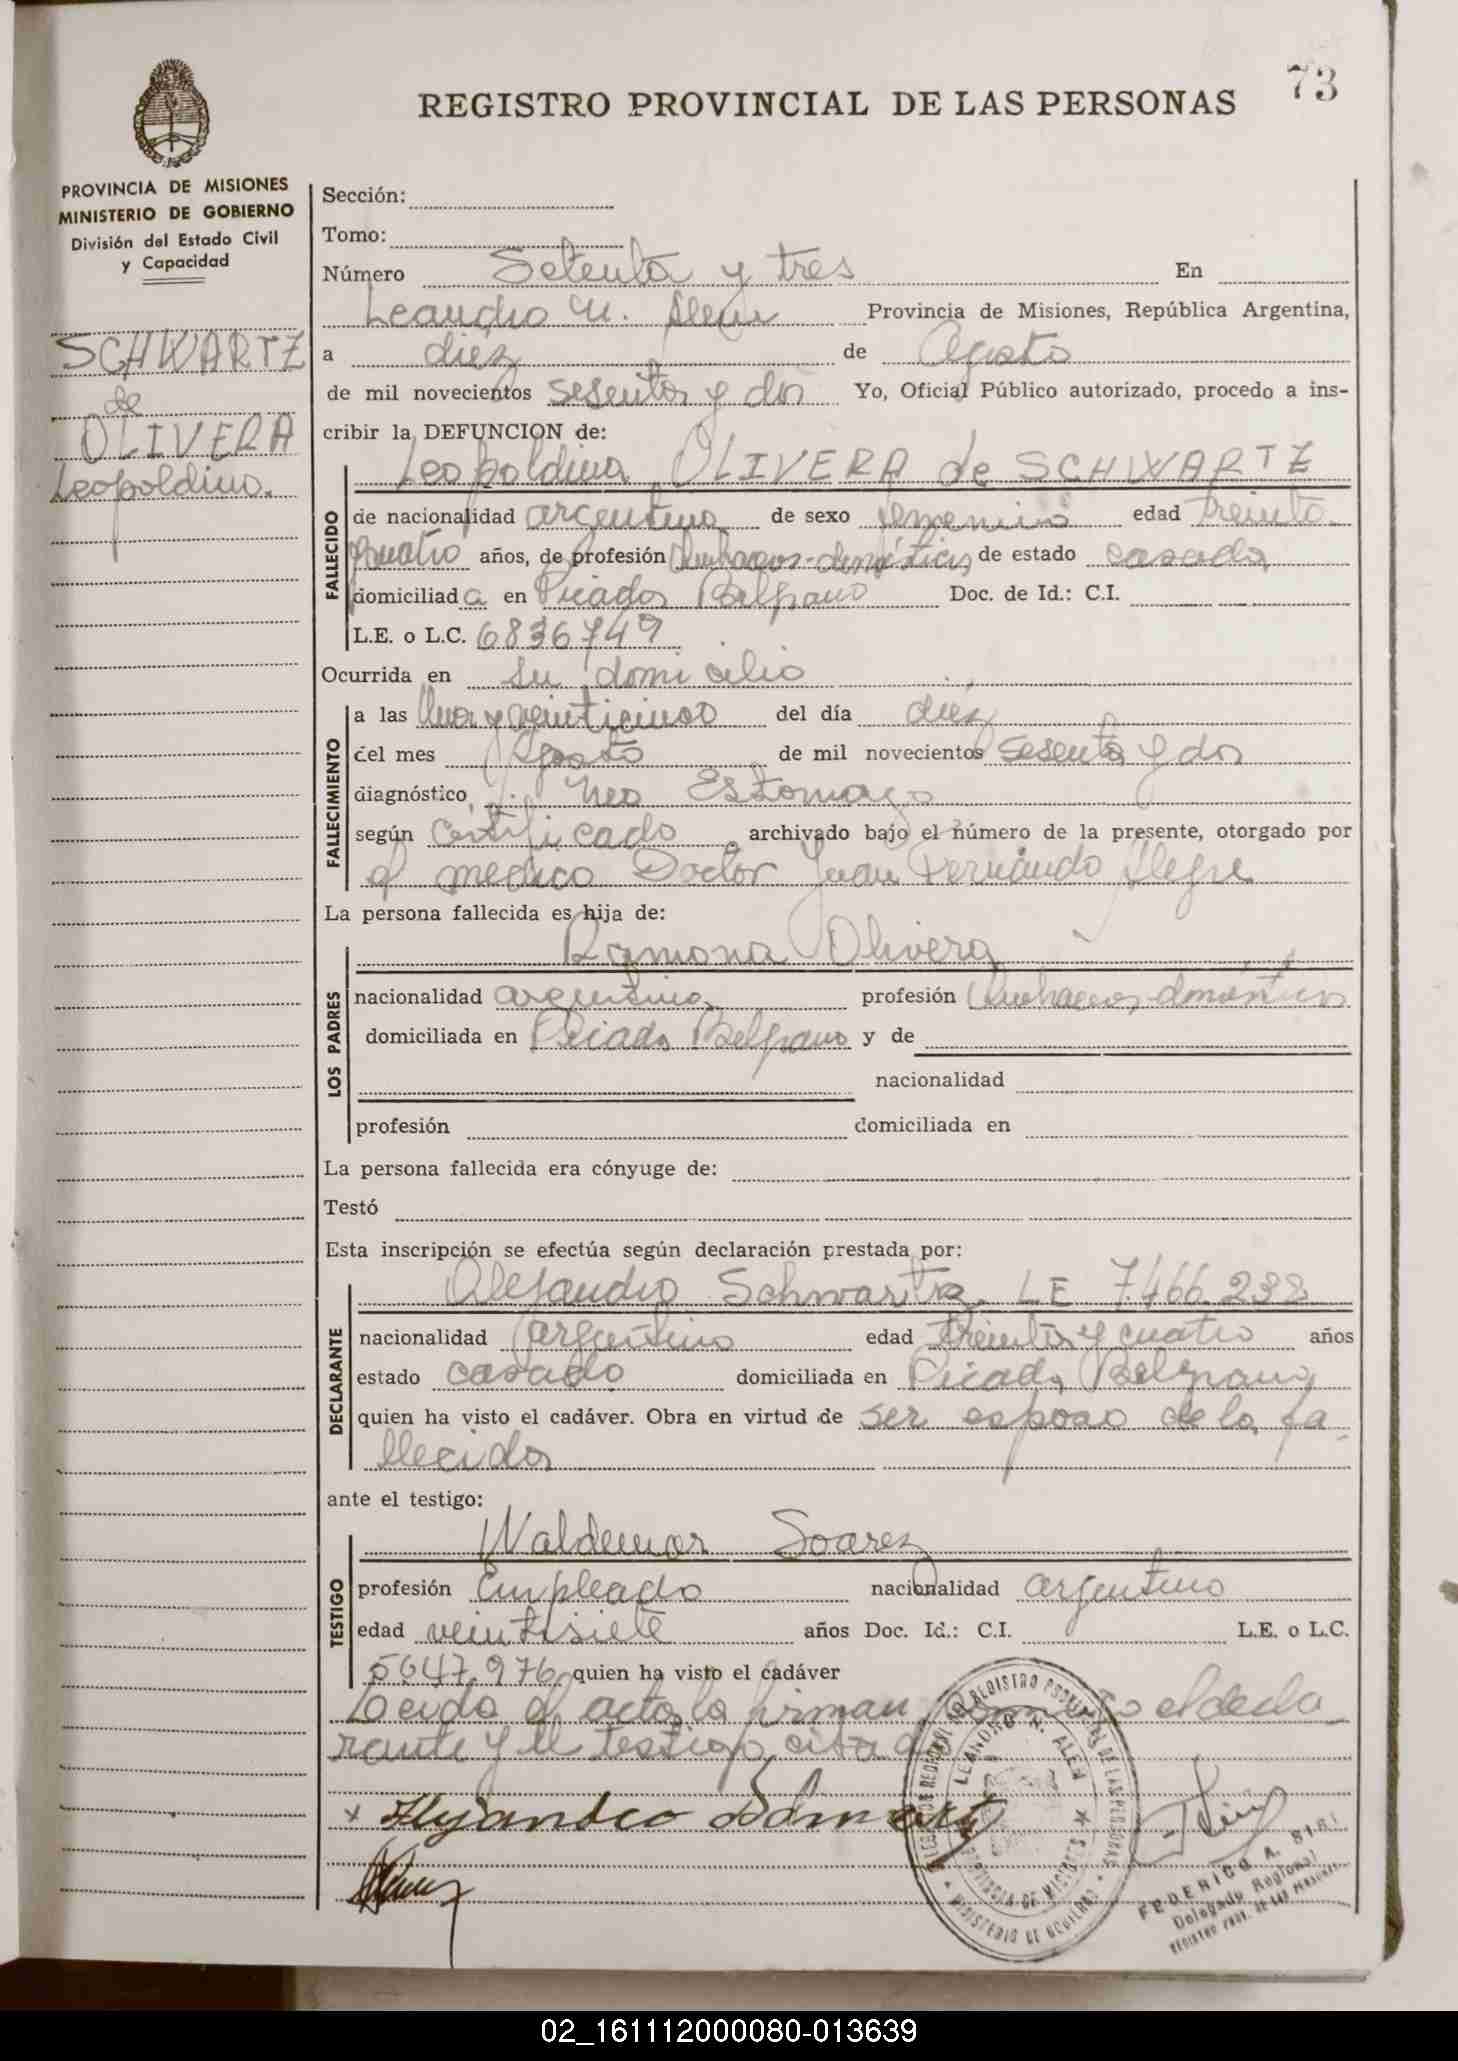 73
REGISTRO PROVINCIAL DE LAS PERSONAS
PROVINCIA DE MISIONES
MINISTERIO DE GOBIERNO
División del Estado Civil
y Capacidad
SCHWARTZ
de
OLIVERA
Leopoldina.
Sección:
Tomo:
Número Setenta y tres En
Leandro N. Alem Provincia de Misiones, República Argentina,
a diéz de Agosto
de mil novecientos sesenta y dos Yo, Oficial Público autorizado, procedo a ins-
cribir la DEFUNCION de:
FALLECIDO
Leopoldina OLIVERA de SCHWARTZ
de nacionalidad argentina de sexo femenino edad treinta
y cuatro años, de profesión Quehaceres-domésticos de estado casada
domiciliada en Picada Belgrano Doc. de Id.: C.I.
L.E. o L.C. 6836749
Ocurrida en su domicilio
FALLECIMIENTO
a las Una y veinticinco del día diéz
del mes Agosto de mil novecientos sesenta y dos
diagnóstico Neo Estomago
según certificado archivado bajo el número de la presente, otorgado por
el medico Doctor Juan Fernando Alegre
La persona fallecida es hija de:
LOS PADRES
Ramona Olivera
nacionalidad argentina profesión Quehaceres domésticos
domiciliada en Picada Belgrano y de
nacionalidad
profesión domiciliada en
La persona fallecida era cónyuge de:
Testó
Esta inscripción se efectúa según declaración prestada por:
DECLARANTE
Alejandro Schwartz LE 7.466.238
nacionalidad argentino edad treinta y cuatro años
estado casado domiciliada en Picada Belgrano
quien ha visto el cadáver. Obra en virtud de ser esposo de la fa
llecida
ante el testigo:
TESTIGO
Waldemar Soarez
profesión Empleado nacionalidad argentino
edad veintisiete años Doc. Id.: C.I. L.E. o L.C.
5647.976 quien ha visto el cadáver
Leida el acta la firman conmigo el decla
rante y el testigo citado
x Alejandro Schwartz
LEANDRO N. ALEM
PROVINCIA DE MISIONES
MINISTERIO DE GOBIERNO
FEDERICO A. BIRI
Delegado Regional
REGISTRO PROV. DE LAS PERSONAS
02_161112000080-013639